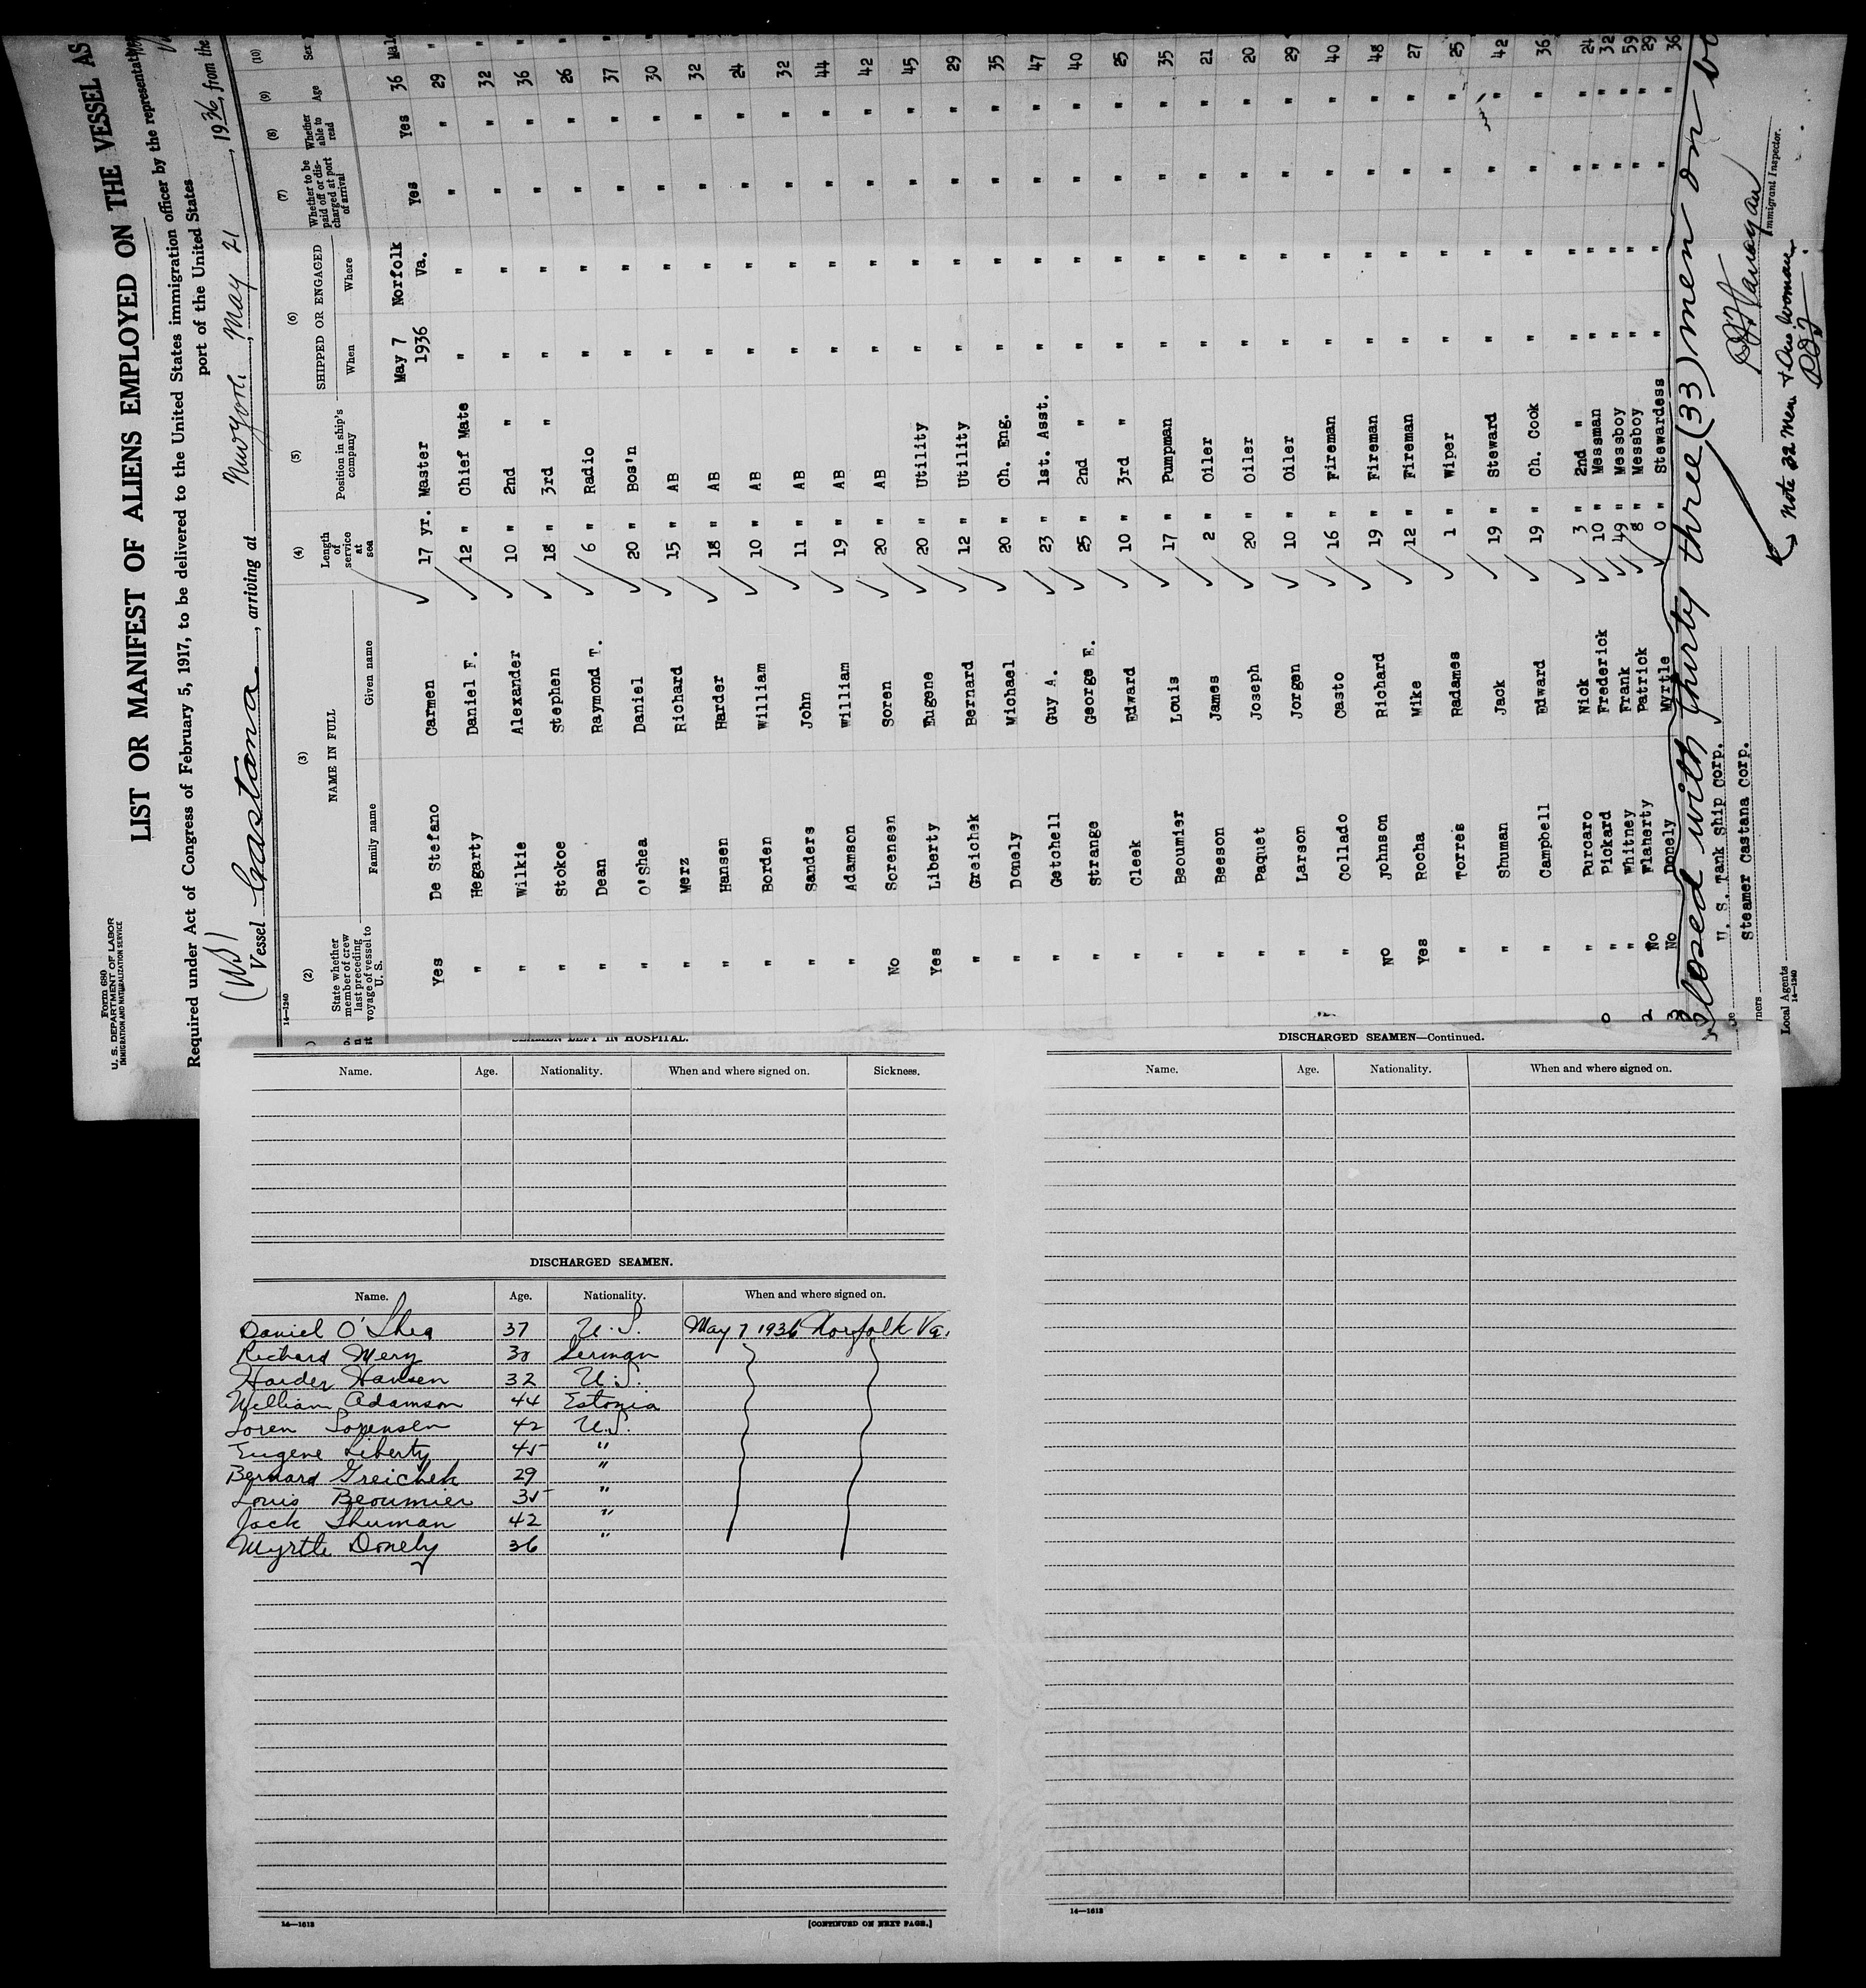 Form 680
U. S. DEPARTMENT OF LABOR
IMMIGRATION AND NATURALIZATION SERVICE
LIST OR MANIFEST OF ALIENS EMPLOYED ON THE VESSEL AS
Required under Act of Congress of February 5, 1917, to be delivered to the United States immigration officer by the representative
port of the United States
Vessel Castana, arriving at New York, May 21, 1936, from the
14—1240
(2) (3) (4) (5) (6) (7) (8) (9) (10)
State whether member of crew last preceding voyage of vessel to U. S. NAME IN FULL Family name Given name Length of service at sea Position in ship's company SHIPPED OR ENGAGED When Where Whether to be paid off or discharged at port of arrival Whether able to read Age Sex
Yes De Stefano Carmen 17 yr. Master May 7 1936 Norfolk Va. Yes Yes 36 Male
" Hegarty Daniel F. 12 " Chief Mate " " " " 29 "
" Wilkie Alexander 10 " 2nd " " " " " 32 "
" Stokoe Stephen 18 " 3rd " " " " " 36 "
" Dean Raymond T. 6 " Radio " " " " 26 "
" O'Shea Daniel 20 " Bos'n " " " " 37 "
" Merz Richard 15 " AB " " " " 30 "
" Hansen Harder 18 " AB " " " " 32 "
" Borden William 10 " AB " " " " 24 "
" Sanders John 11 " AB " " " " 32 "
" Adamson William 19 " AB " " " " 44 "
No Sorensen Soren 20 " AB " " " " 42 "
Yes Liberty Eugene 20 " Utility " " " " 45 "
" Greichek Bernard 12 " Utility " " " " 29 "
" Donely Michael 20 " Ch. Eng. " " " " 35 "
" Getchell Guy A. 23 " 1st. Asst. " " " " 47 "
" Strange George E. 25 " 2nd " " " " " 40 "
" Cleek Edward 10 " 3rd " " " " " 25 "
" Beoumier Louis 17 " Pumpman " " " " 35 "
" Beeson James 2 " Oiler " " " " 21 "
" Paquet Joseph 20 " Oiler " " " " 20 "
" Larson Jorgen 10 " Oiler " " " " 29 "
" Collado Casto 16 " Fireman " " " " 40 "
No Johnson Richard 19 " Fireman " " " " 48 "
Yes Rocha Mike 12 " Fireman " " " " 27 "
" Torres Radames 1 " Wiper " " " " 25 "
" Shuman Jack 19 " Steward " " " " 42 "
" Campbell Edward 19 " Ch. Cook " " " " 36 "
" Purcaro Nick 3 " 2nd " " " " " 24
" Pickard Frederick 10 " Messman " " " " 32
" Whitney Frank 49 " Messboy " " " " 59
No Flaherty Patrick 8 " Messboy " " " " 29
No Donely Myrtle 0 " Stewardess " " " " 36
Closed with thirty three (33) men on bo
U. S. Tank Ship Corp.
Steamer Castana Corp.
Immigrant Inspector.
Note 32 men & one woman
Local Agents
14—1240
SEAMEN LEFT IN HOSPITAL.
Name. Age. Nationality. When and where signed on. Sickness.
DISCHARGED SEAMEN.
Name. Age. Nationality. When and where signed on.
Daniel O'Shea 37 U. S. May 7 1936 Norfolk Va.
Richard Merz 30 German
Harder Hansen 32 U. S.
William Adamson 44 Estonia
Soren Sorensen 42 U. S.
Eugene Liberty 45 "
Bernard Greichek 29 "
Louis Beoumier 35 "
Jack Shuman 42 "
Myrtle Donely 36 "
14—1613
[CONTINUED ON NEXT PAGE.]
DISCHARGED SEAMEN—Continued.
Name. Age. Nationality. When and where signed on.
14—1613